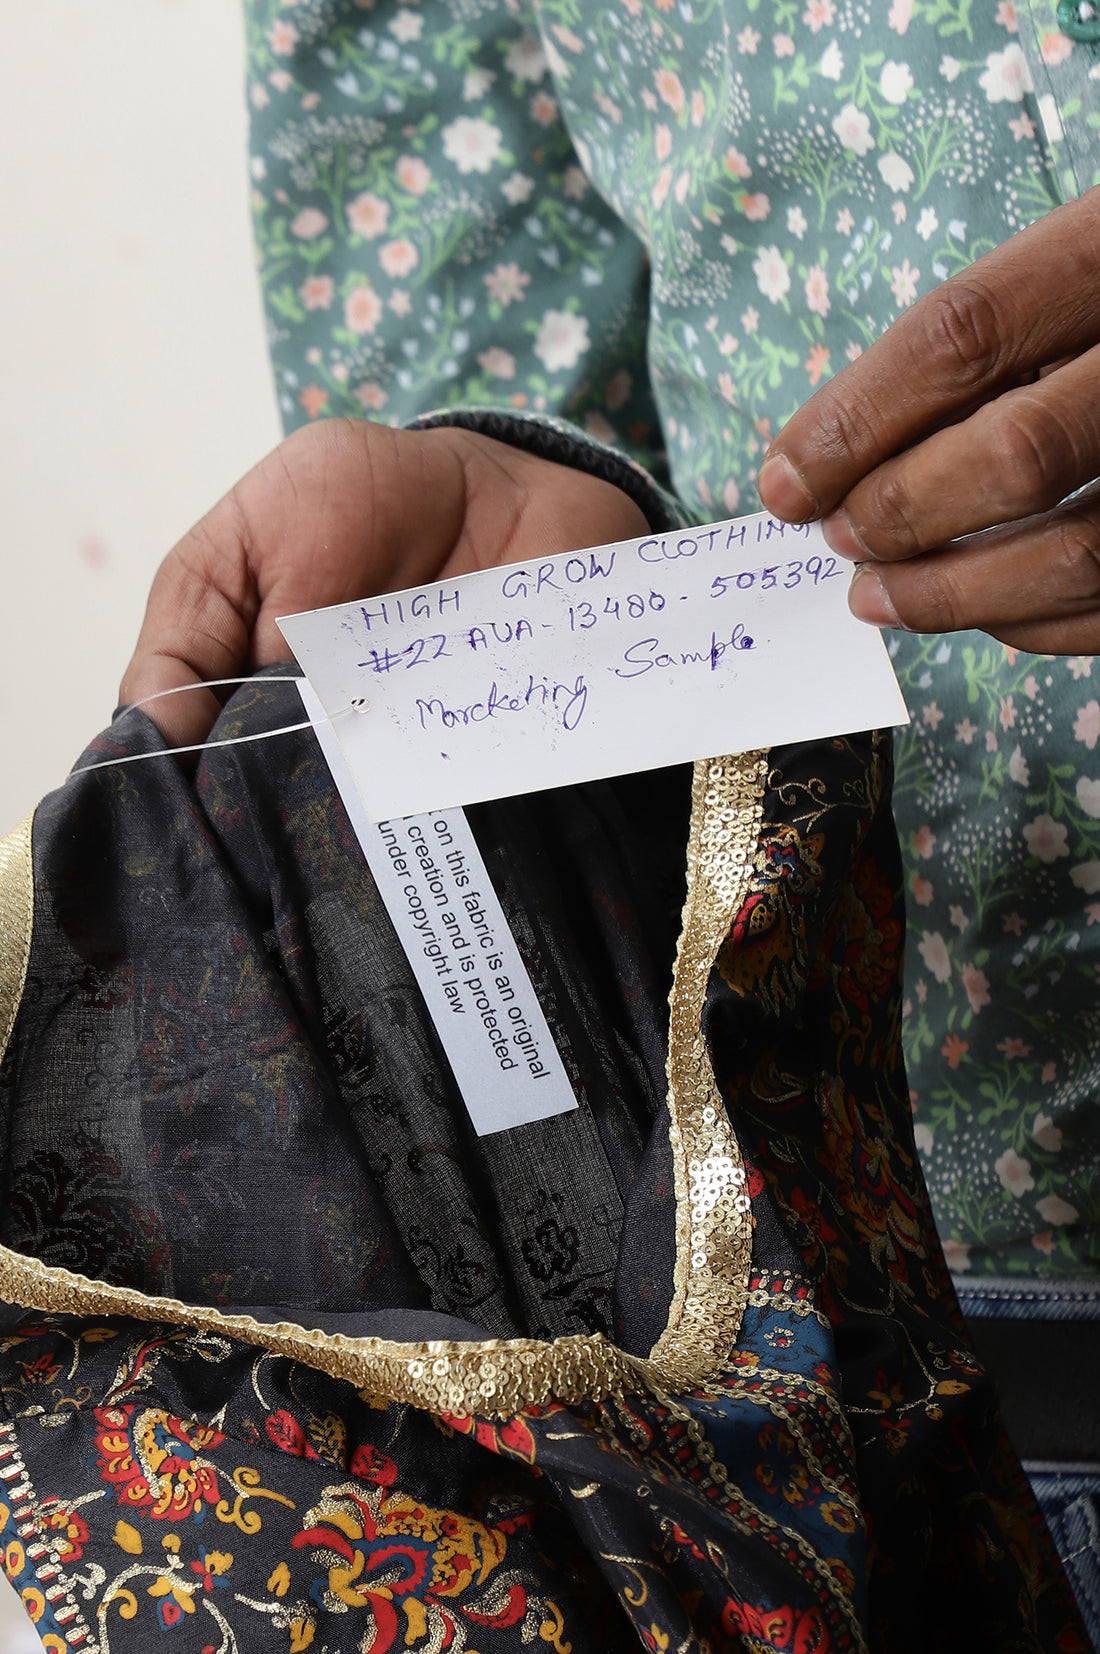 HIGH GROW CLOTHING
#22 AUA - 13480 - 505392
Marcketing Sample
on this fabric is an original
creation and is protected
under copyright law